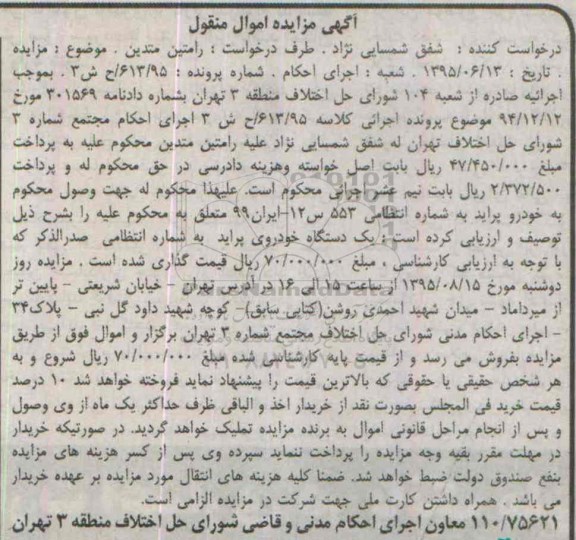 آگهی مزایده اموال منقول
درخواست کننده : شفق شمسایی نژاد . طرف درخواست : رامتین متدین . موضوع : مزایده
. تاریخ : ۱۳۹۵/۰۶/۱۳ . شعبه : اجرای احکام . شماره پرونده : ۶۱۳/۹۵/ح ش۳ . بموجب
اجرائیه صادره از شعبه ۱۰۴ شورای حل اختلاف منطقه ۳ تهران بشماره دادنامه ۳۰۱۵۶۹ مورخ
۹۴/۱۲/۱۲ موضوع پرونده اجرائی کلاسه ۶۱۳/۹۵/ح ش ۳ اجرای احکام مجتمع شماره ۳
شورای حل اختلاف تهران له شفق شمسایی نژاد علیه رامتین متدین محکوم علیه به پرداخت
مبلغ ۴۷/۴۵۰/۰۰۰ ریال بابت اصل خواسته وهزینه دادرسی در حق محکوم له و پرداخت
۲/۳۷۲/۵۰۰ ریال بابت نیم عشر اجرائی محکوم است. علیهذا محکوم له جهت وصول محکوم
به خودرو پراید به شماره انتظامی ۵۵۳ س۱۲-ایران۹۹ متعلق به محکوم علیه را بشرح ذیل
توصیف و ارزیابی کرده است : یک دستگاه خودروی پراید به شماره انتظامی صدرالذکر که
با توجه به ارزیابی کارشناسی ، مبلغ ۷۰/۰۰۰/۰۰۰ ریال قیمت گذاری شده است . مزایده روز
دوشنبه مورخ ۱۳۹۵/۰۸/۱۵ از ساعت ۱۵ الی ۱۶ در آدرس تهران - خیابان شریعتی - پایین تر
از میرداماد - میدان شهید احمدی روشن(کتابی سابق)- کوچه شهید داود گل نبی - پلاک۳۴
- اجرای احکام مدنی شورای حل اختلاف مجتمع شماره ۳ تهران برگزار و اموال فوق از طریق
مزایده بفروش می رسد و از قیمت پایه کارشناسی شده مبلغ ۷۰/۰۰۰/۰۰۰ ریال شروع و به
هر شخص حقیقی یا حقوقی که بالاترین قیمت را پیشنهاد نماید فروخته خواهد شد ۱۰ درصد
قیمت خرید فی المجلس بصورت نقد از خریدار اخذ و الباقی ظرف حداکثر یک ماه از وی وصول
و پس از انجام مراحل قانونی اموال به برنده مزایده تملیک خواهد گردید. در صورتیکه خریدار
در مهلت مقرر بقیه وجه مزایده را پرداخت ننماید سپرده وی پس از کسر هزینه های مزایده
بنفع صندوق دولت ضبط خواهد شد. ضمنا کلیه هزینه های انتقال مورد مزایده بر عهده خریدار
می باشد . همراه داشتن کارت ملی جهت شرکت در مزایده الزامی است.
۱۱۰/۷۵۶۲۱ معاون اجرای احکام مدنی و قاضی شورای حل اختلاف منطقه ۳ تهران